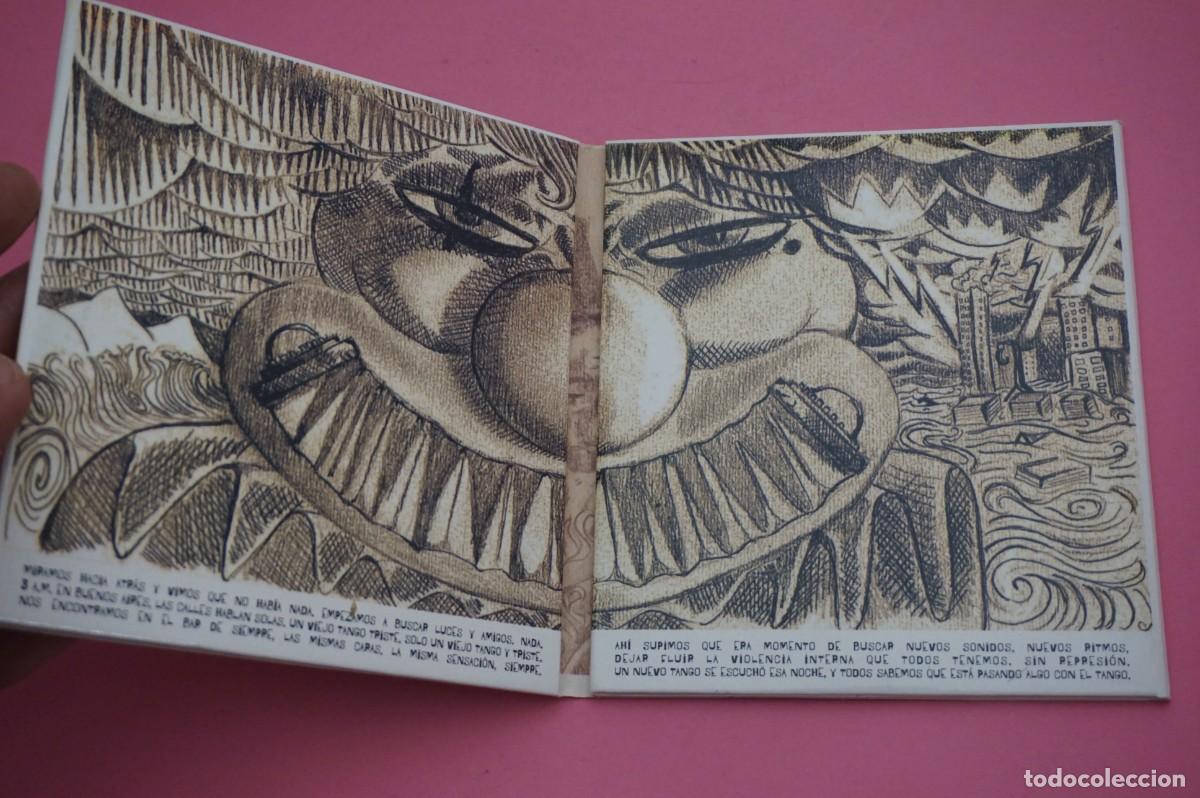 MIRAMOS HACIA ATRÁS Y VIMOS QUE NO HABÍA NADA. EMPEZAMOS A BUSCAR LUCES Y AMIGOS. NADA.
3 A.M. EN BUENOS AIRES, LAS CALLES HABLAN SOLAS. UN VIEJO TANGO TRISTE. SOLO UN VIEJO TANGO Y TRISTE.
NOS ENCONTRAMOS EN EL BAR DE SIEMPRE, LAS MISMAS CARAS, LA MISMA SENSACIÓN, SIEMPRE.
AHÍ SUPIMOS QUE ERA MOMENTO DE BUSCAR NUEVOS SONIDOS, NUEVOS RITMOS,
DEJAR FLUIR LA VIOLENCIA INTERNA QUE TODOS TENEMOS, SIN REPRESIÓN.
UN NUEVO TANGO SE ESCUCHÓ ESA NOCHE, Y TODOS SABEMOS QUE ESTÁ PASANDO ALGO CON EL TANGO.
todocoleccion